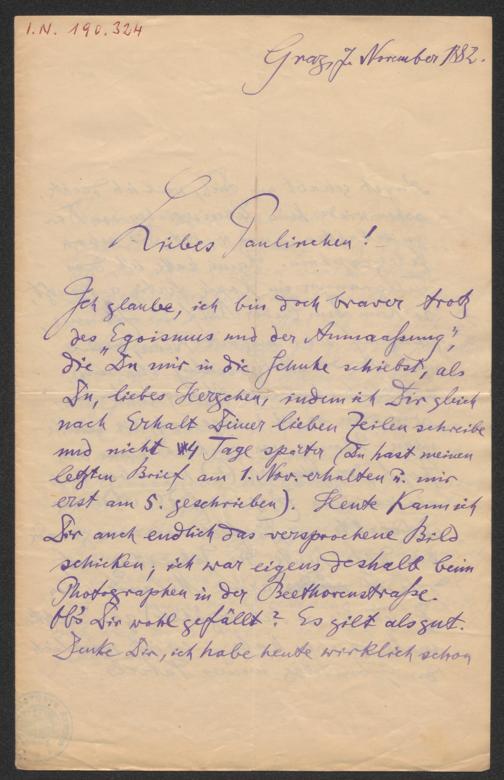 I.N. 190.324
Graz, 7. November 1882.
Liebes Paulinchen!
Ich glaube, ich bin doch braver trotz
des "Egoismus und der Anmaaßung",
die Du mir in die Schuhe schiebst, als
Du, liebes Herzchen, indem ich Dir gleich
nach Erhalt Deiner lieben Zeilen schreibe
und nicht 4 Tage später (Du hast meinen
letzten Brief am 1. Nov. erhalten u. mir
erst am 5. geschrieben). Heute kann ich
Dir auch endlich das versprochene Bild
schicken; ich war eigens deshalb beim
Photographen in der Beethovenstraße.
Ob's Dir wohl gefällt? Es gilt als gut.
Denke Dir, ich habe heute wirklich schon